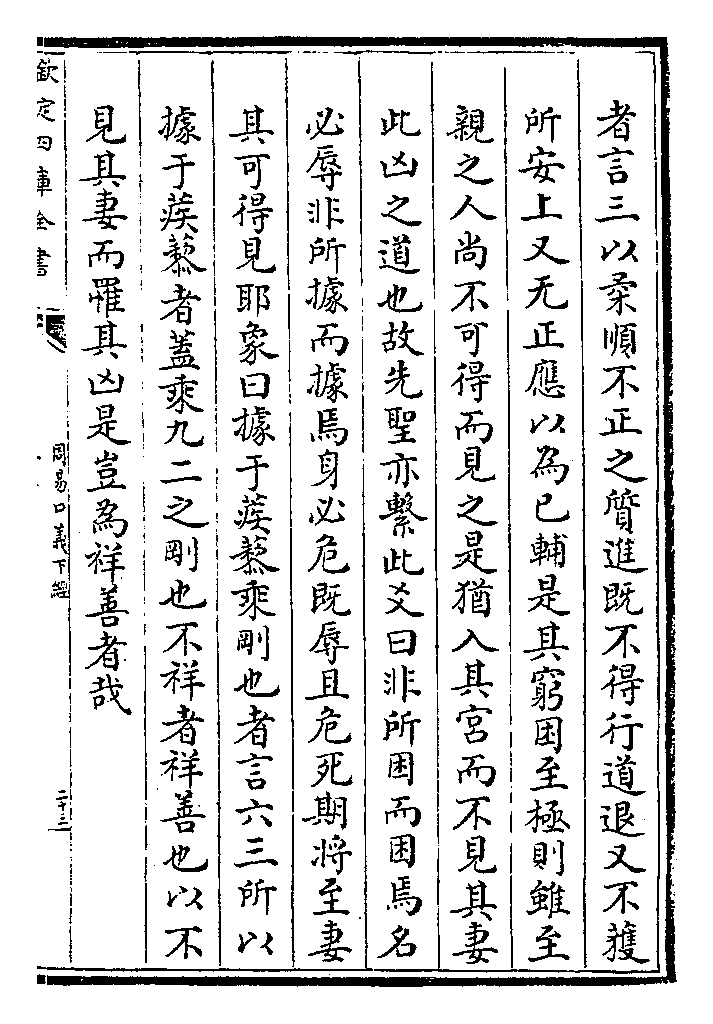 者言三以柔順不正之質進既不得行道退又不獲
所安上又无正應以為已輔是其窮困至極則雖至
親之人尚不可得而見之是猶入其宮而不見其妻
此凶之道也故先聖亦繫此爻曰非所困而困焉名
必辱非所據而據焉身必危既辱且危死期將至妻
其可得見耶象曰據于蒺藜乘剛也者言六三所以
據于蒺藜者蓋乘九二之剛也不祥者祥善也以不
見其妻而罹其凶是豈為祥善者哉
欽定四庫全書
周易口義下經
二十三